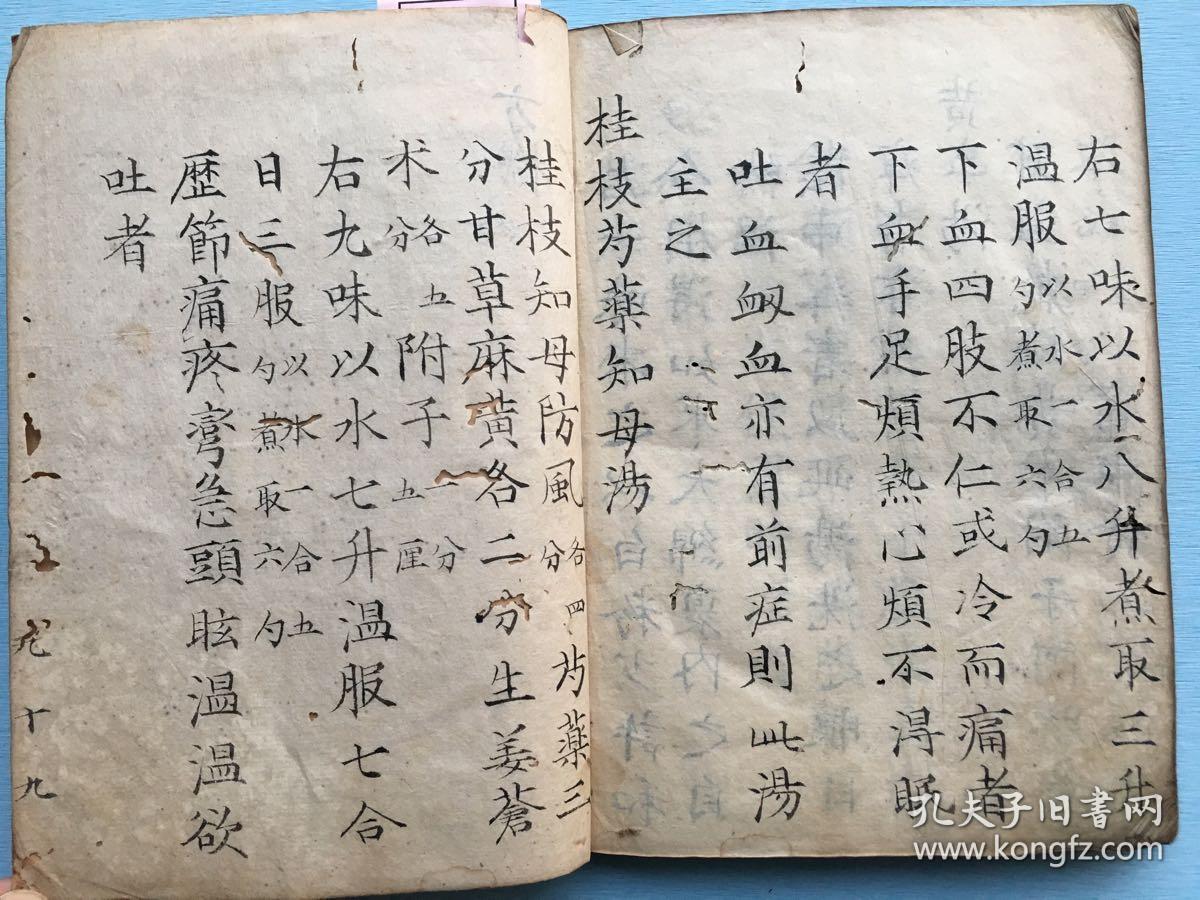 右七味以水八升煮取三升
温服以水一合五勺煮取六勺
下血四肢不仁或冷而痛者
下血手足煩熱心煩不得眠
者
吐血衂血亦有前症則此湯
主之
桂枝芍薬知母湯
桂枝知母防風各四分芍薬三
分甘草麻黄各二分生姜蒼
术各五分附子一分五厘
右九味以水七升温服七合
日三服以水一合五勺煮取六勺
歴節痛疼彎急頭眩温温欲
吐者
十九
孔夫子旧书网
www.kongfz.com